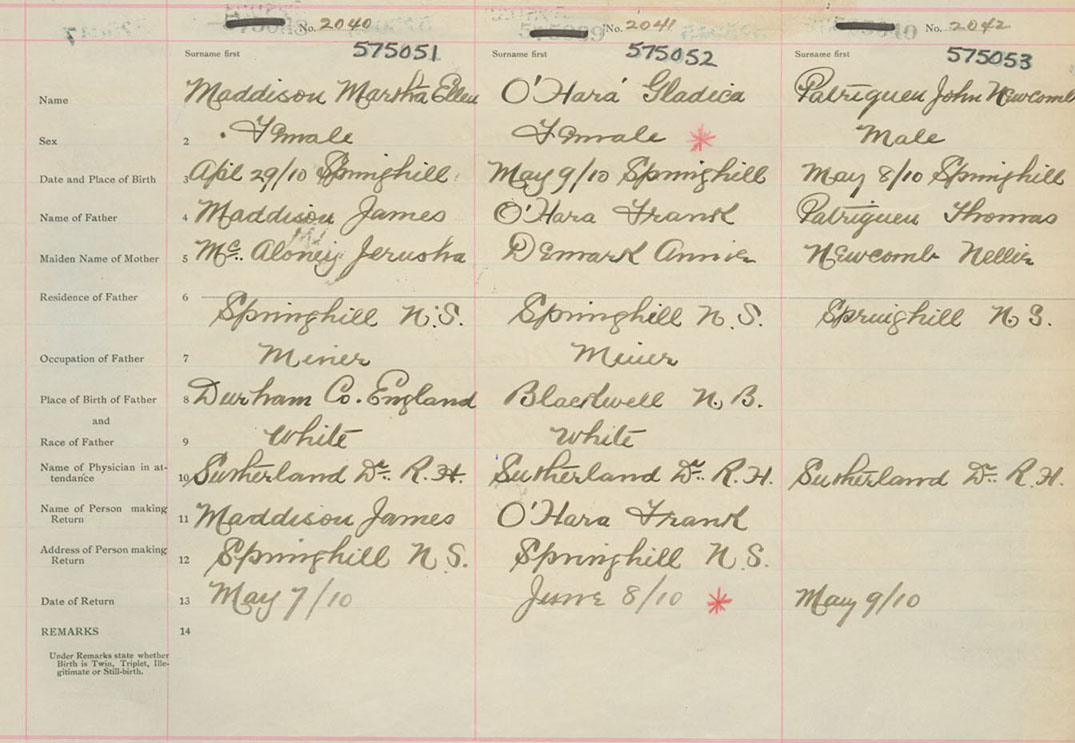 No. 2040 No. 2041 No. 2042
Surname first 575051 Surname first 575052 Surname first 575053
Name Maddison Martha Ellen O'Hara Gladica Patriquen John Newcomb
Sex 2 Female Female Male
Date and Place of Birth 3 Apil 29/10 Springhill May 9/10 Springhill May 8/10 Springhill
Name of Father 4 Maddison James O'Hara Frank Patriquen Thomas
Maiden Name of Mother 5 Mc. Aloney Jerusha Demark Annie Newcomb Nellie
Residence of Father 6
Springhill N.S. Springhill N.S. Springhill N.S.
Occupation of Father 7 Miner Miner
Place of Birth of Father 8 Durham Co. England Blackwell N.B.
and
Race of Father 9 White White
Name of Physician in at-
tendance 10 Sutherland Dr. R.H. Sutherland Dr. R.H. Sutherland Dr. R.H.
Name of Person making
Return 11 Maddison James O'Hara Frank
Address of Person making
Return 12 Springhill N.S. Springhill N.S.
Date of Return 13 May 7/10 June 8/10 May 9/10
REMARKS 14
Under Remarks state whether
Birth is Twin, Triplet, Ille-
gitimate or Still-birth.